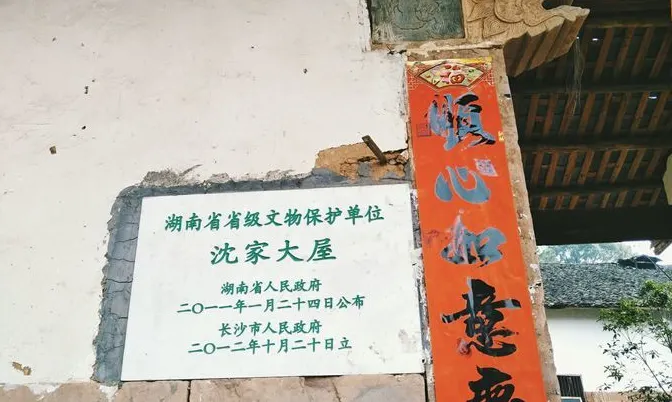 湖南省省级文物保护单位
沈家大屋
湖南省人民政府
二〇一一年一月二十四日公布
长沙市人民政府
二〇一二年十月二十日立
福
順心如意